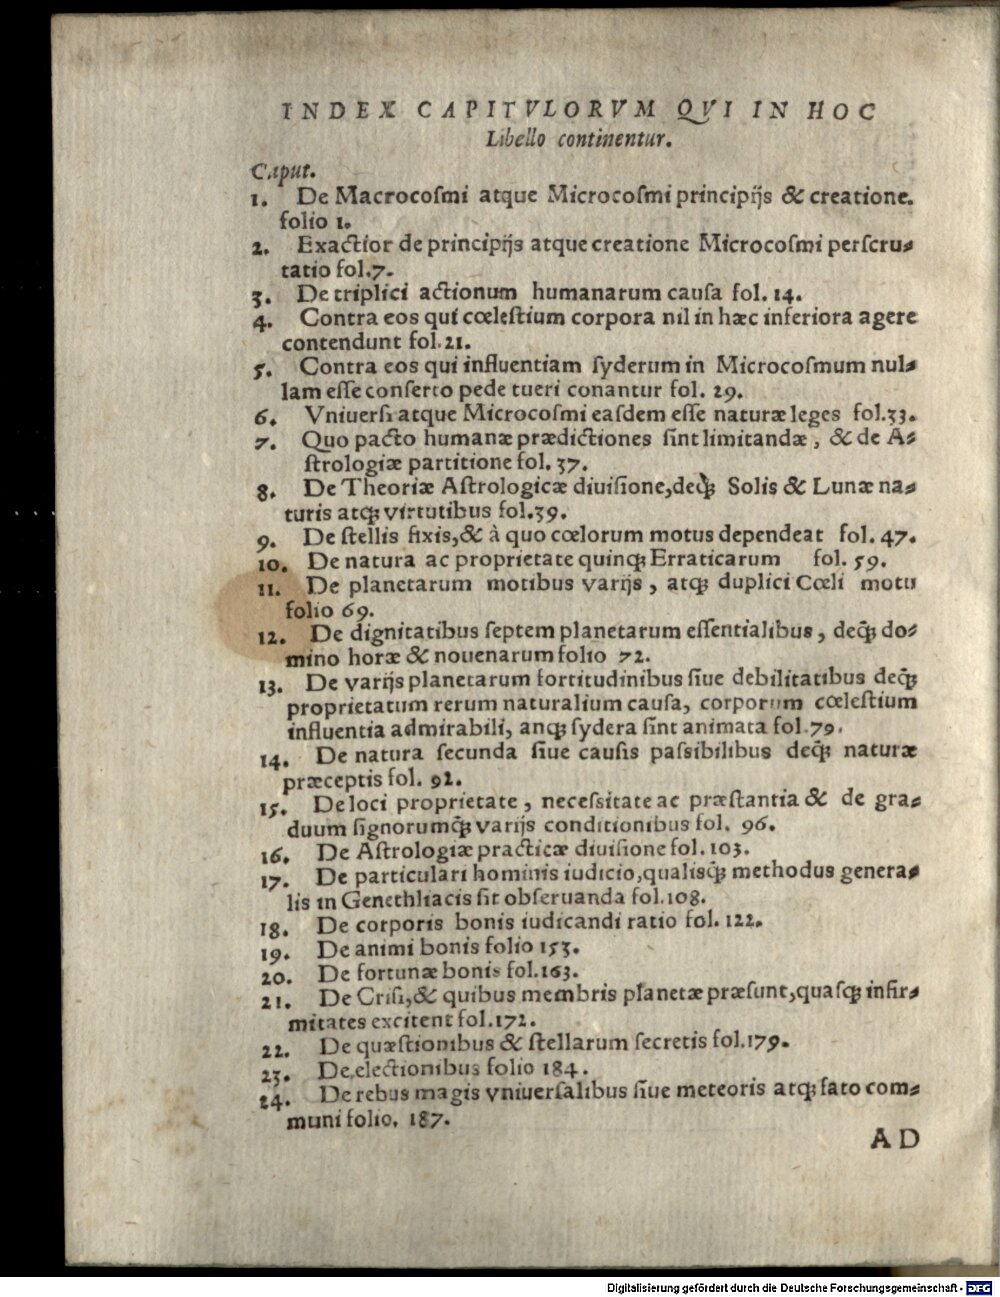 INDEX CAPITVLORVM QVI IN HOC
Libello continentur.
Caput.
1. De Macrocoſmi atque Microcoſmi principijs & creatione.
folio 1.
2. Exactior de principijs atque creatione Microcoſmi perſcru⸗
tatio fol.7.
3. De triplici actionum humanarum cauſa fol. 14.
4. Contra eos qui cœleſtium corpora nil in hæc inferiora agere
contendunt fol.21.
5. Contra eos qui influentiam ſyderum in Microcoſmum nul⸗
lam eſſe conſerto pede tueri conantur fol. 29.
6. Vniuerſi atque Microcoſmi eaſdem eſſe naturæ leges fol.33.
7. Quo pacto humanæ prædictiones ſint limitandæ, & de A⸗
ſtrologiæ partitione fol. 37.
8. De Theoriæ Aſtrologicæ diuiſione,deq́ꝫ Solis & Lunæ na⸗
turis atqꝫ virtutibus fol.39.
9. De ſtellis fixis,& à quo cœlorum motus dependeat fol. 47.
10. De natura ac proprietate quinqꝫ Erraticarum fol. 59.
11. De planetarum motibus varijs, atqꝫ duplici Cœli motu
folio 69.
12. De dignitatibus ſeptem planetarum eſſentialibus, deq́ꝫ do⸗
mino horæ & nouenarum folio 72.
13. De varijs planetarum fortitudinibus ſiue debilitatibus deq́ꝫ
proprietatum rerum naturalium cauſa, corporum cœleſtium
influentia admirabili, anqꝫ ſydera ſint animata fol.79.
14. De natura ſecunda ſiue cauſis paſsibilibus deq́ꝫ naturæ
præceptis fol. 92.
15. De loci proprietate, neceſsitate ac præſtantia & de gra⸗
duum ſignorumq́ꝫ varijs conditionibus fol. 96.
16. De Aſtrologiæ practicæ diuiſione fol.103.
17. De particulari hominis iudicio,qualisq́ꝫ methodus genera⸗
lis in Genethliacis ſit obſeruanda fol.108.
18. De corporis bonis iudicandi ratio fol. 122.
19. De animi bonis folio 153.
20. De fortunæ bonis fol.163.
21. De Criſi,& quibus membris planetæ præſunt,quaſqꝫ infir⸗
mitates excitent fol.172.
22. De quæſtionibus & ſtellarum ſecretis fol.179.
23. De electionibus folio 184.
24. De rebus magis vniuerſalibus ſiue meteoris atqꝫ fato com⸗
muni folio. 187.
AD
Digitalisierung gefördert durch die Deutsche Forschungsgemeinschaft - DFG